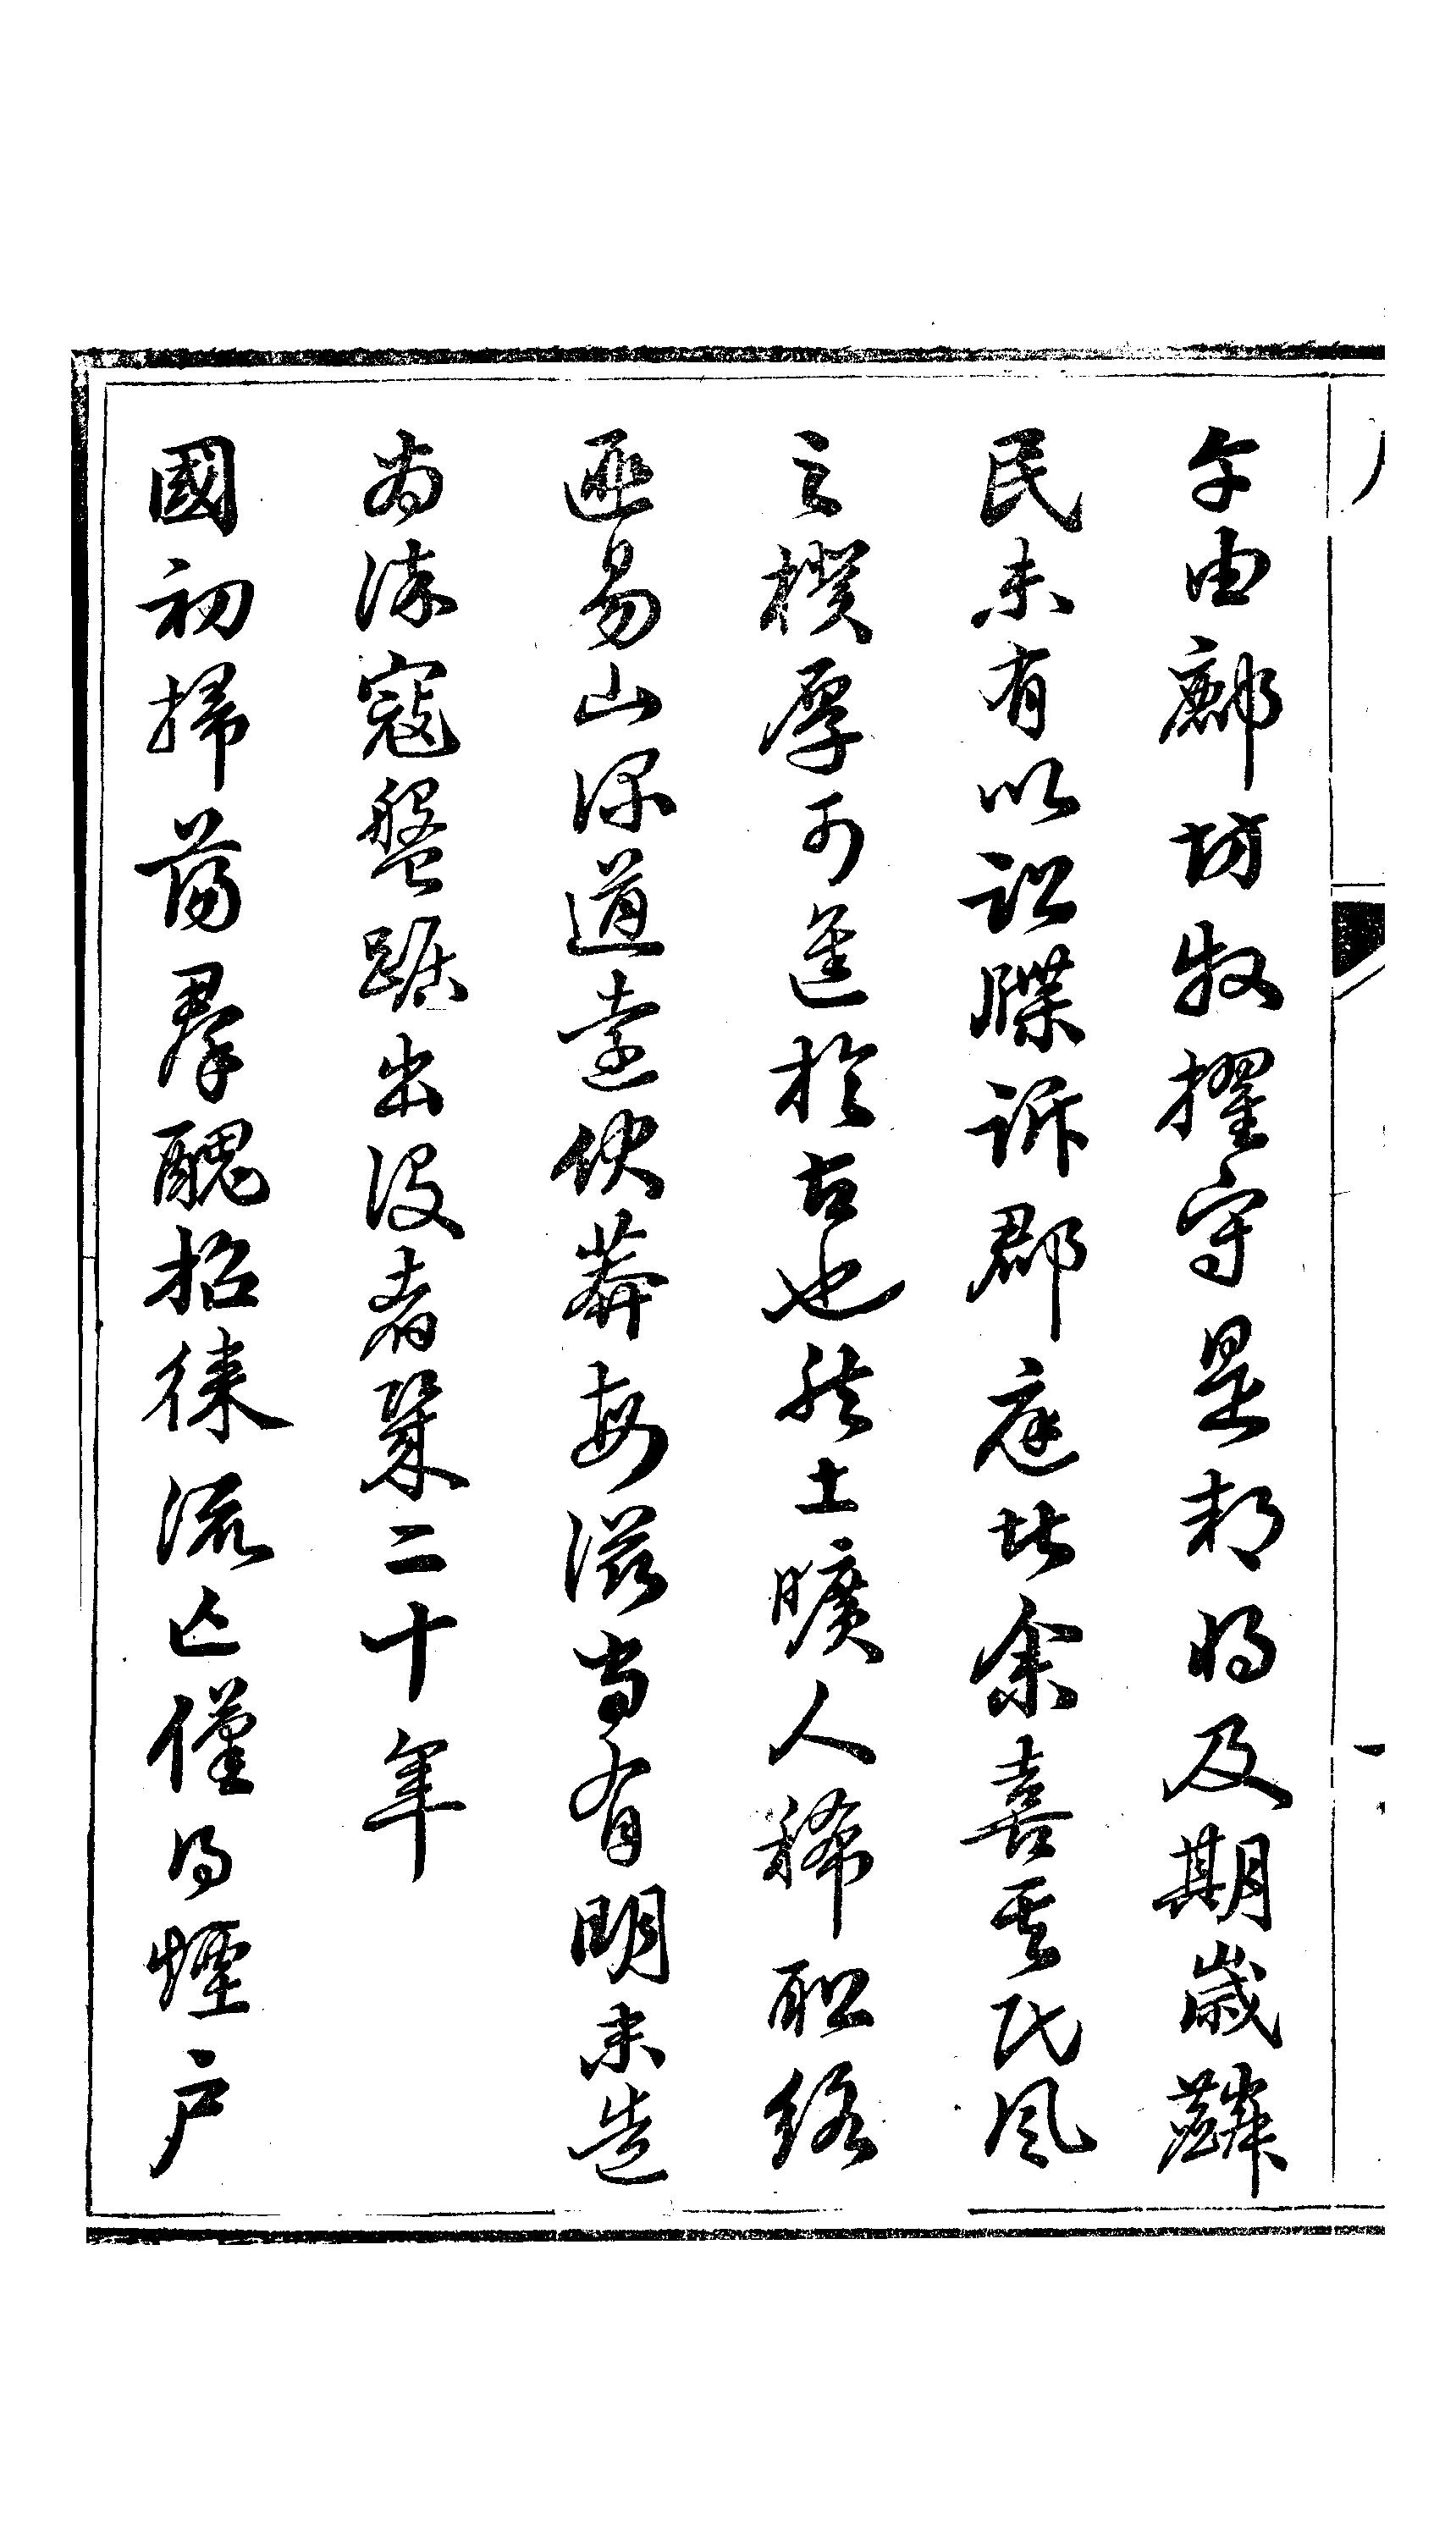 午由鄜坊牧擢守是邦將及期歲麟
民未有以訟牒訴郡庭此余喜其民風
之樸厚可進於古也然土曠人稀聯絡
匪易山深道遠伏莽每滋當有明末造
為流寇盤踞出沒者幾二十年
國初掃蕩羣醜招徠流亡僅得煙戶